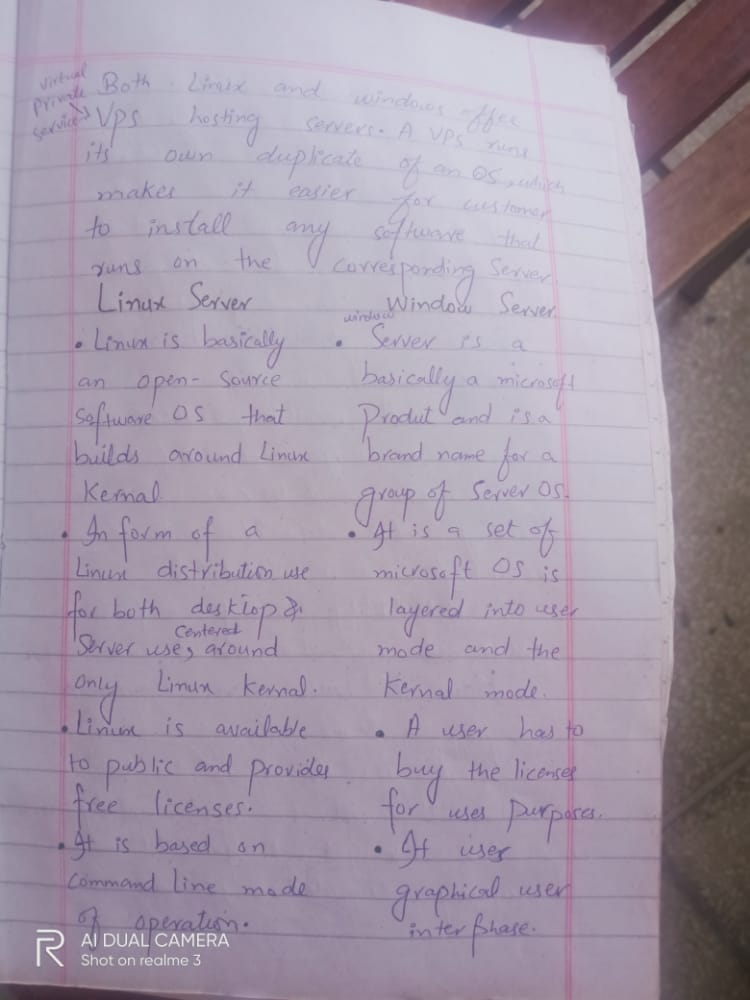 virtual
private
service
Both Linux and windows offer
VPS hosting servers. A VPS runs
its own duplicate of an OS, which
makes it easier for customer
to install any software that
runs on the corresponding Server
Linux Server
• Linux is basically
an open-source
software OS that
builds around Linux
Kernal
• In form of a
Linux distribution use
for both desktop &
Server use, centered around
only Linux kernal.
• Linux is available
to public and provides
free licenses.
• It is based on
command line mode
of operation.
Window Server
• window Server is a
basically a microsoft
Produt and is a
brand name for a
group of Server OS.
• It is a set of
microsoft OS is
layered into user
mode and the
Kernal mode.
• A user has to
buy the licenses
for uses purposes.
• It user
graphical user
interphase.
AI DUAL CAMERA
Shot on realme 3